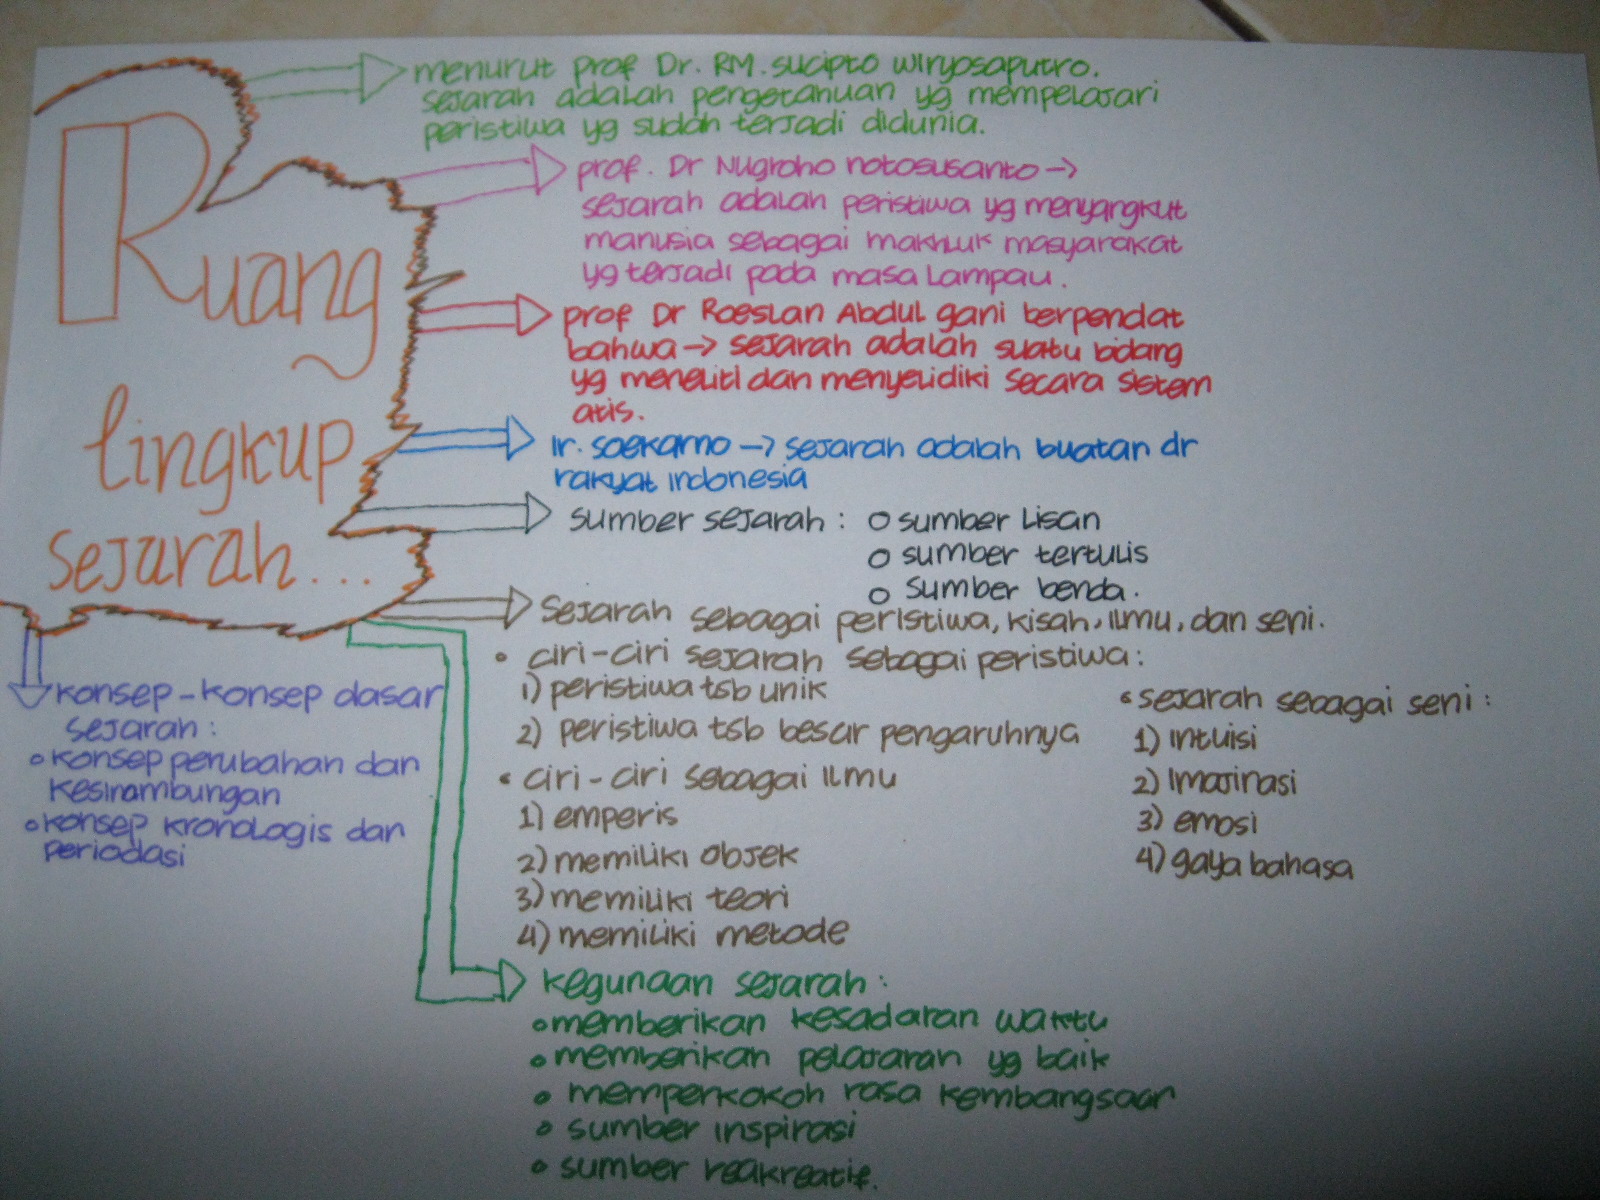 Ruang
lingkup
sejarah...
menurut prof Dr. RM. sucipto wiryosaputro.
sejarah adalah pengetahuan yg mempelajari
peristiwa yg sudah terjadi didunia.
prof. Dr Nugroho notosusanto →
sejarah adalah peristiwa yg menyangkut
manusia sebagai makhluk masyarakat
yg terjadi pada masa Lampau.
prof Dr Roeslan Abdul gani berpendat
bahwa → sejarah adalah suatu bidang
yg meneliti dan menyelidiki secara sistem
atis.
Ir. soekarno → sejarah adalah buatan dr
rakyat indonesia
sumber sejarah : o sumber Lisan
o sumber tertulis
o sumber benda.
Sejarah sebagai peristiwa, kisah, ilmu, dan seni.
• ciri-ciri sejarah sebagai peristiwa :
1) peristiwa tsb unik
2) peristiwa tsb besar pengaruhnya
• ciri-ciri sebagai ilmu
1) emperis
2) memiliki objek
3) memiliki teori
4) memiliki metode
• sejarah sebagai seni :
1) intuisi
2) imajinasi
3) emosi
4) gaya bahasa
konsep-konsep dasar
sejarah :
o konsep perubahan dan
kesinambungan
o konsep kronologis dan
periodasi
kegunaan sejarah :
o memberikan kesadaran waktu
o memberikan pelajaran yg baik
o memperkokoh rasa kembangsaan
o sumber inspirasi
o sumber reakreatif.